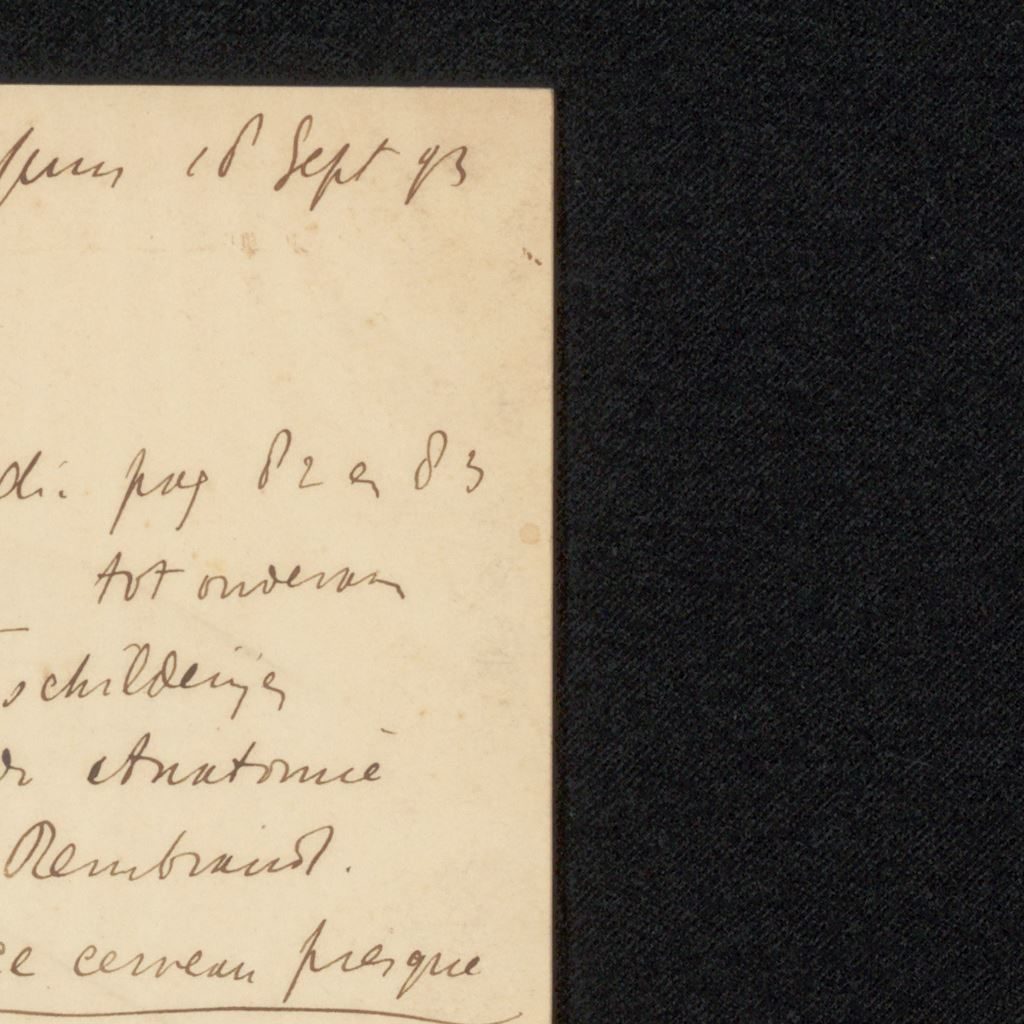 18 Sept 93
di. pag 82 en 83
tot onderwerp
schilderijen
Anatomie
Rembrandt.
ce cerveau presque